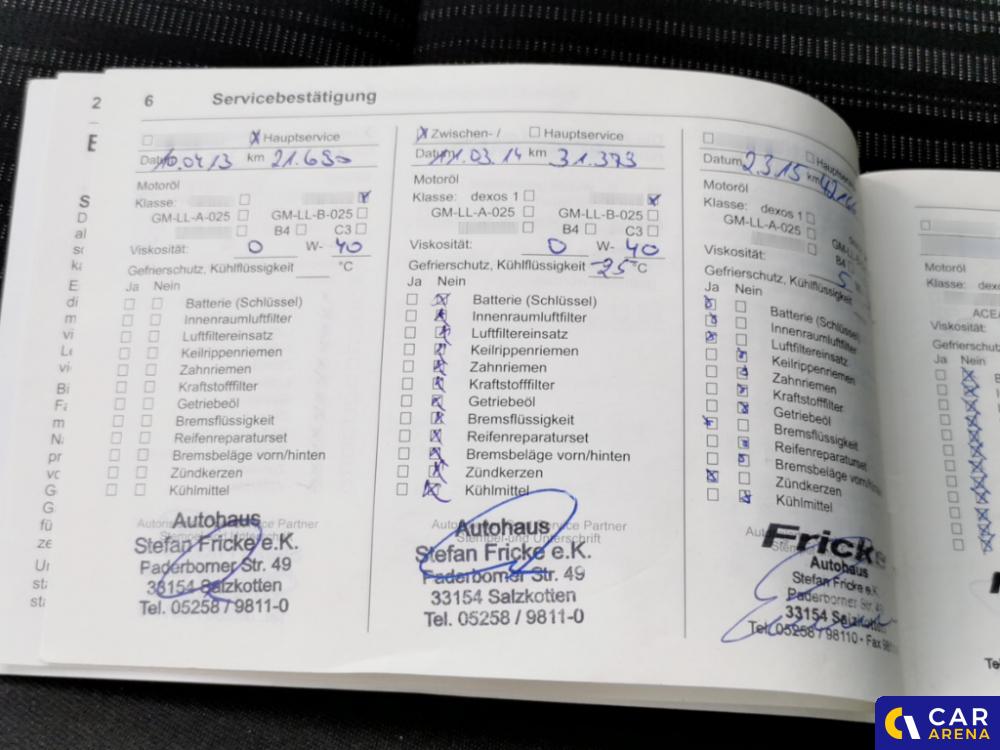 2
6 Servicebestätigung
E
X Hauptservice
Datum 10.04.13 km 21.680
Motoröl
Klasse:
GM-LL-A-025 GM-LL-B-025
B4 C3
Viskosität: 0 W- 40
Gefrierschutz, Kühlflüssigkeit °C
Ja Nein
Batterie (Schlüssel)
Innenraumluftfilter
Luftfiltereinsatz
Keilrippenriemen
Zahnriemen
Kraftstofffilter
Getriebeöl
Bremsflüssigkeit
Reifenreparaturset
Bremsbeläge vorn/hinten
Zündkerzen
Kühlmittel
Autohaus
Stefan Fricke e.K.
Paderborner Str. 49
33154 Salzkotten
Tel. 05258 / 9811-0
X Zwischen- / Hauptservice
Datum 11.03.14 km 31.373
Motoröl
Klasse: dexos 1
GM-LL-A-025 GM-LL-B-025
B4 C3
Viskosität: 0 W- 40
Gefrierschutz, Kühlflüssigkeit -25 °C
Ja Nein
Batterie (Schlüssel)
Innenraumluftfilter
Luftfiltereinsatz
Keilrippenriemen
Zahnriemen
Kraftstofffilter
Getriebeöl
Bremsflüssigkeit
Reifenreparaturset
Bremsbeläge vorn/hinten
Zündkerzen
Kühlmittel
Service Partner
Stempel und Unterschrift
Autohaus
Stefan Fricke e.K.
Paderborner Str. 49
33154 Salzkotten
Tel. 05258 / 9811-0
Hauptservice
Datum 2.3.15 km
Motoröl
Klasse: dexos 1
GM-LL-A-025
B4
Viskosität: 5
Gefrierschutz, Kühlflüssigkeit
Ja Nein
Batterie (Schlüssel)
Innenraumluftfilter
Luftfiltereinsatz
Keilrippenriemen
Zahnriemen
Kraftstofffilter
Getriebeöl
Bremsflüssigkeit
Reifenreparaturset
Bremsbeläge vorn/hinten
Zündkerzen
Kühlmittel
Autohaus
Stefan Fricke e.K.
Paderborner Str. 49
33154 Salzkotten
Tel. 05258 / 98110 - Fax
Motoröl
Klasse:
Viskosität:
Ja Nein
CAR
ARENA